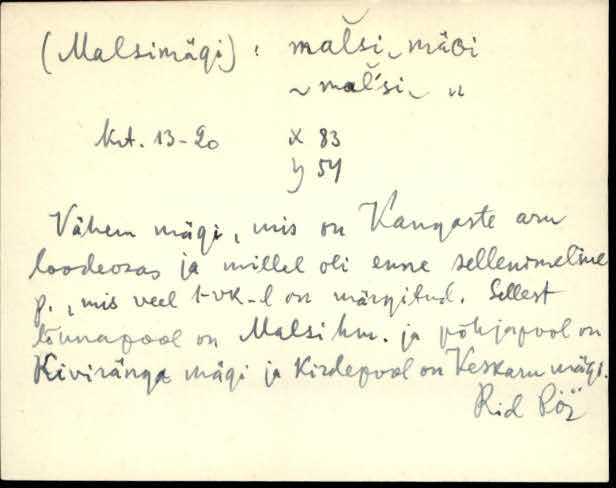 (Malsimägi) : malsi mäGi
~ malsi „
krt. 13-20 x 83
y 54
Vähem mägi, mis on Kangaste aru
loodeosas ja millel oli enne sellenimeline
p., mis veel 1-vk-l on märgitud. Sellest
lõunapool on Malsi hm. ja põhjapool on
Kiviränga mägi ja Kirdepool on Keskaru mägi.
Rid Pöi